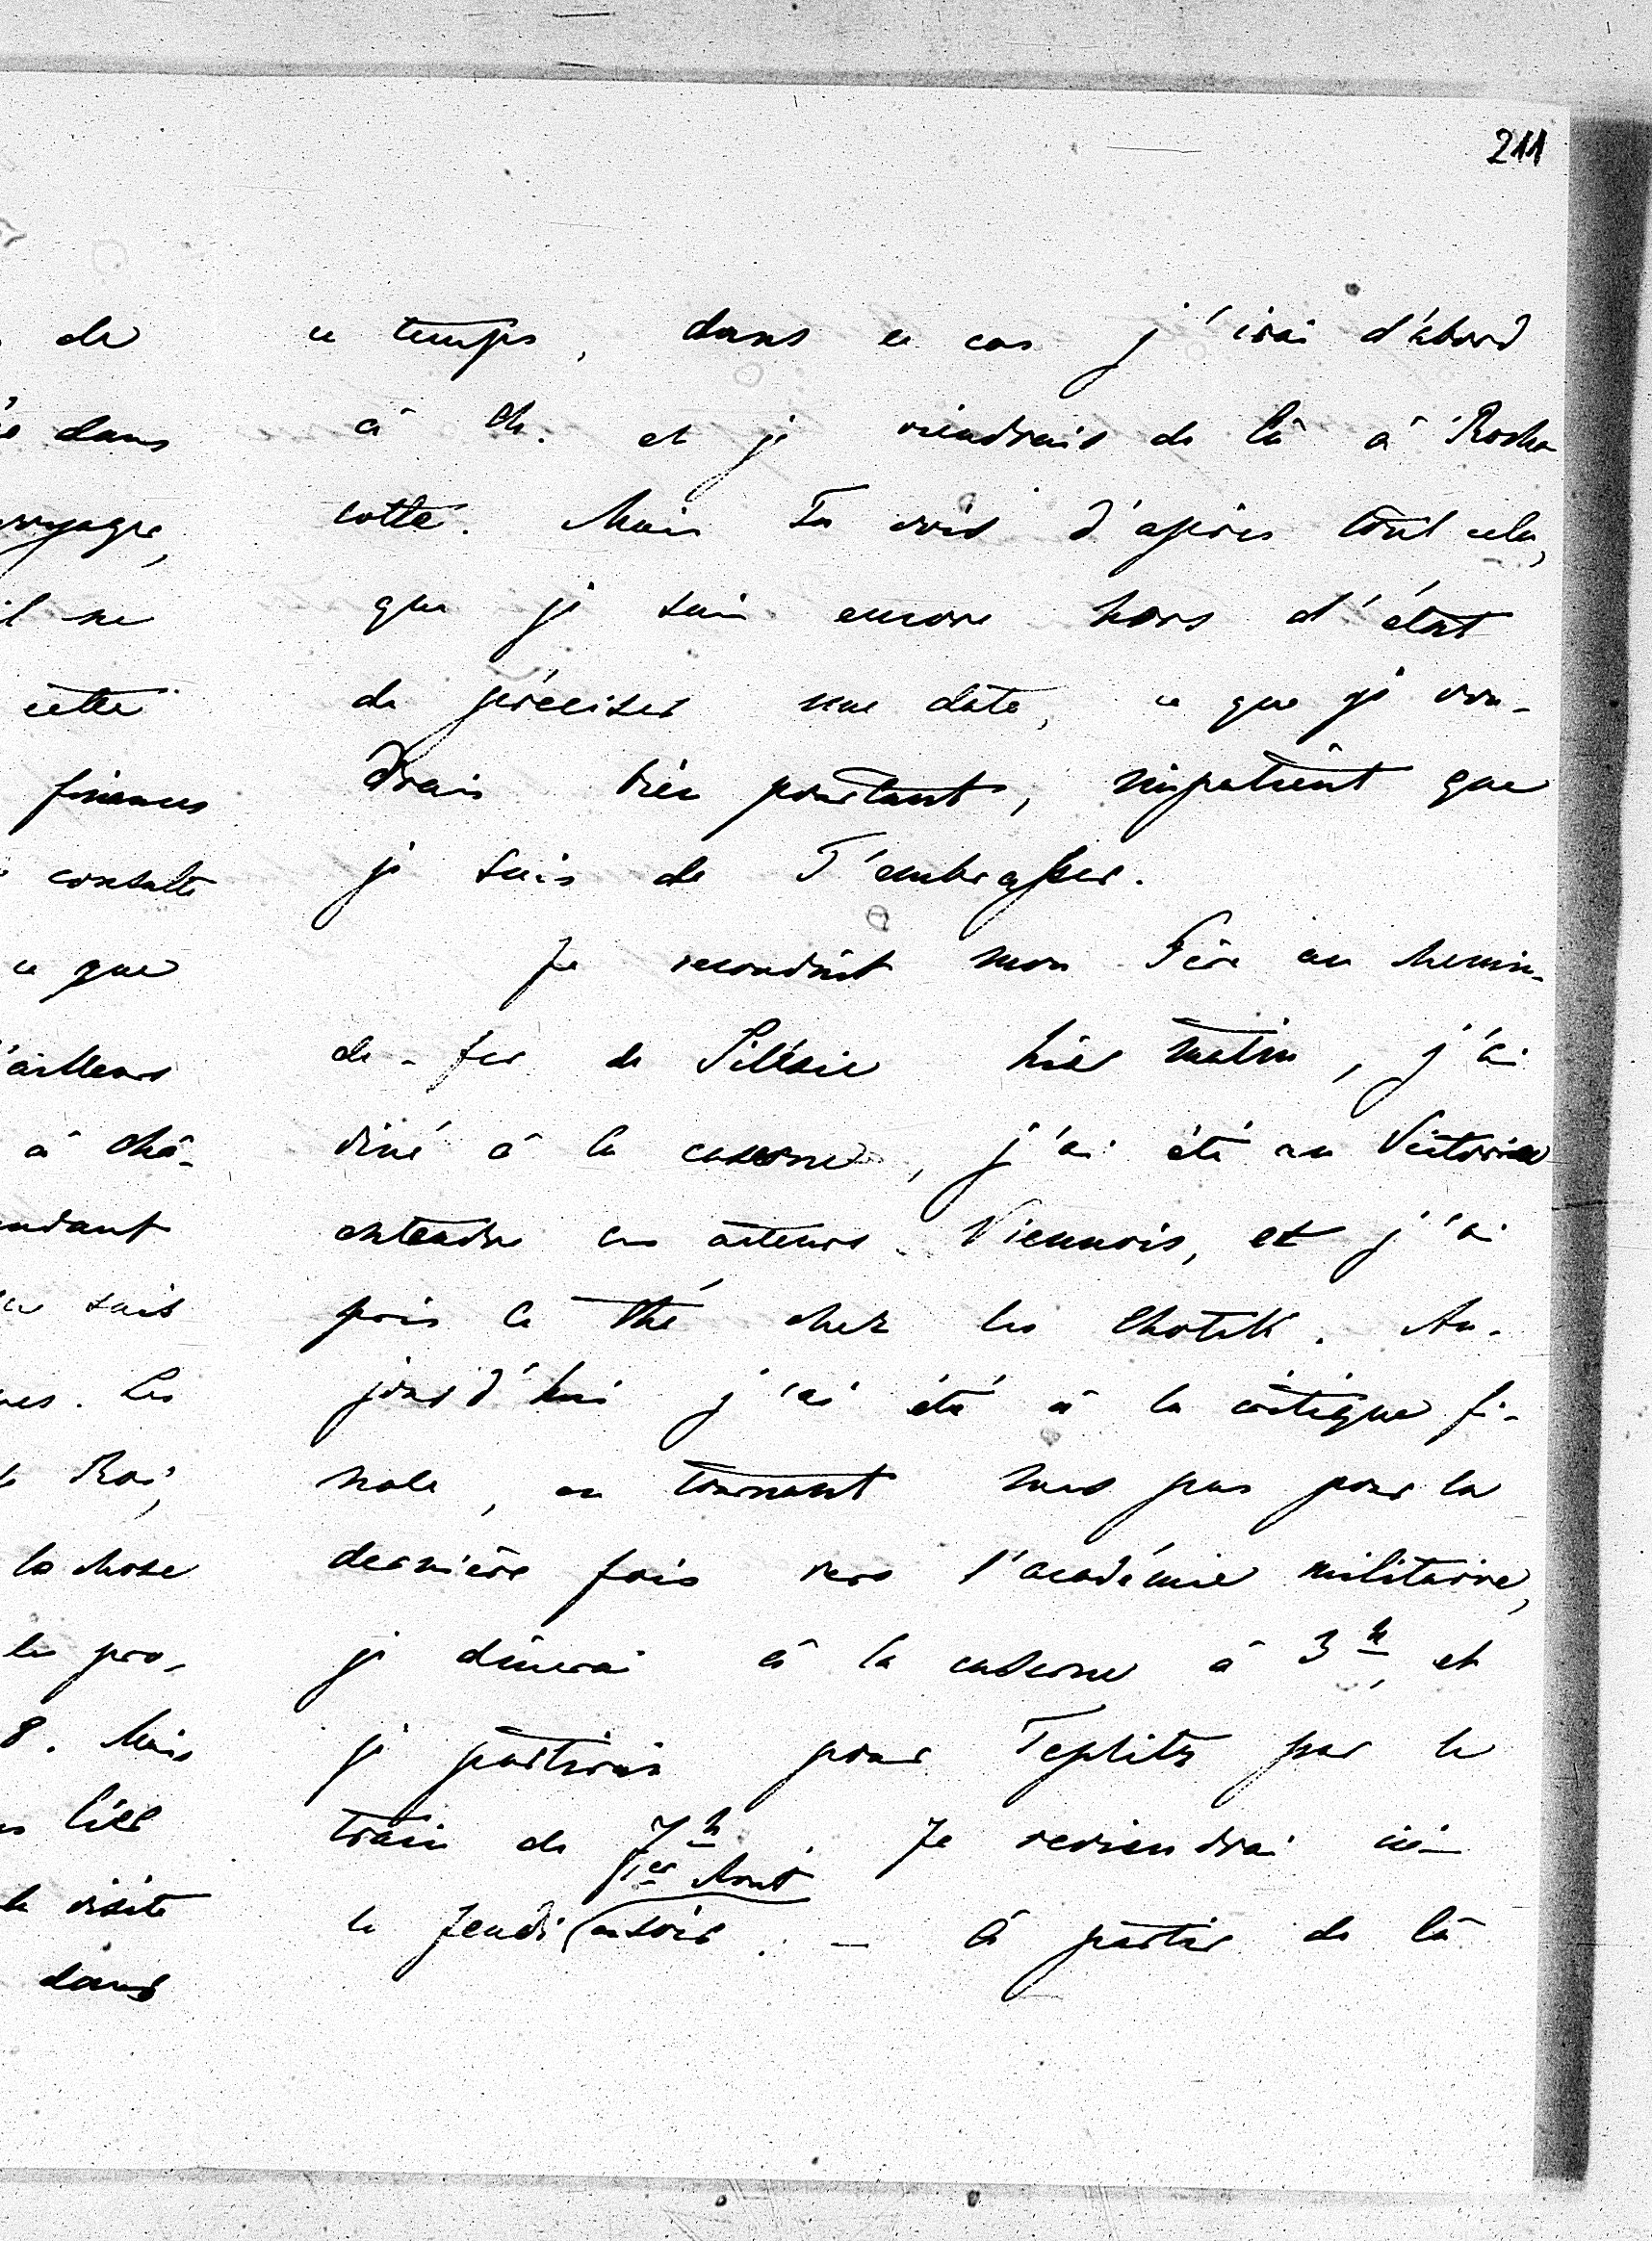 211
de
dans
voyage,
il ne
cette
finances
consulte
ce que
d'ailleurs
à châ-
pendant
sais
Les
Roi,
la chose
les pro-
8. Mais
visite
dans
ce temps, dans ce cas j'irai d'abord
à Ch. et je viendrais de là à Roche
cotte. Mais Tu vois d'après tout cela,
que je suis encore hors d'état
de préciser une date, ce que je vou-
drais bien pourtant, impatient que
je suis de T'embrasser.
Je reconduisit mon Père au chemin-
de-fer de Silésie hier matin, j'ai
diné à la caserne, j'ai été au Victoria
entendre les acteurs Viennois, et j'ai
pris le thé chez les Chotek. Au-
jourd'hui j'ai été à la critique fi-
nale, en tournant mes pas pour la
dernière fois vers l'académie militaire,
je dinerai à la caserne à 3 h, et
je partirai pour Teplitz par le
train de 7 h. Je reviendrai ici
1er Aout
le Jeudi (au soir. — à partir de là